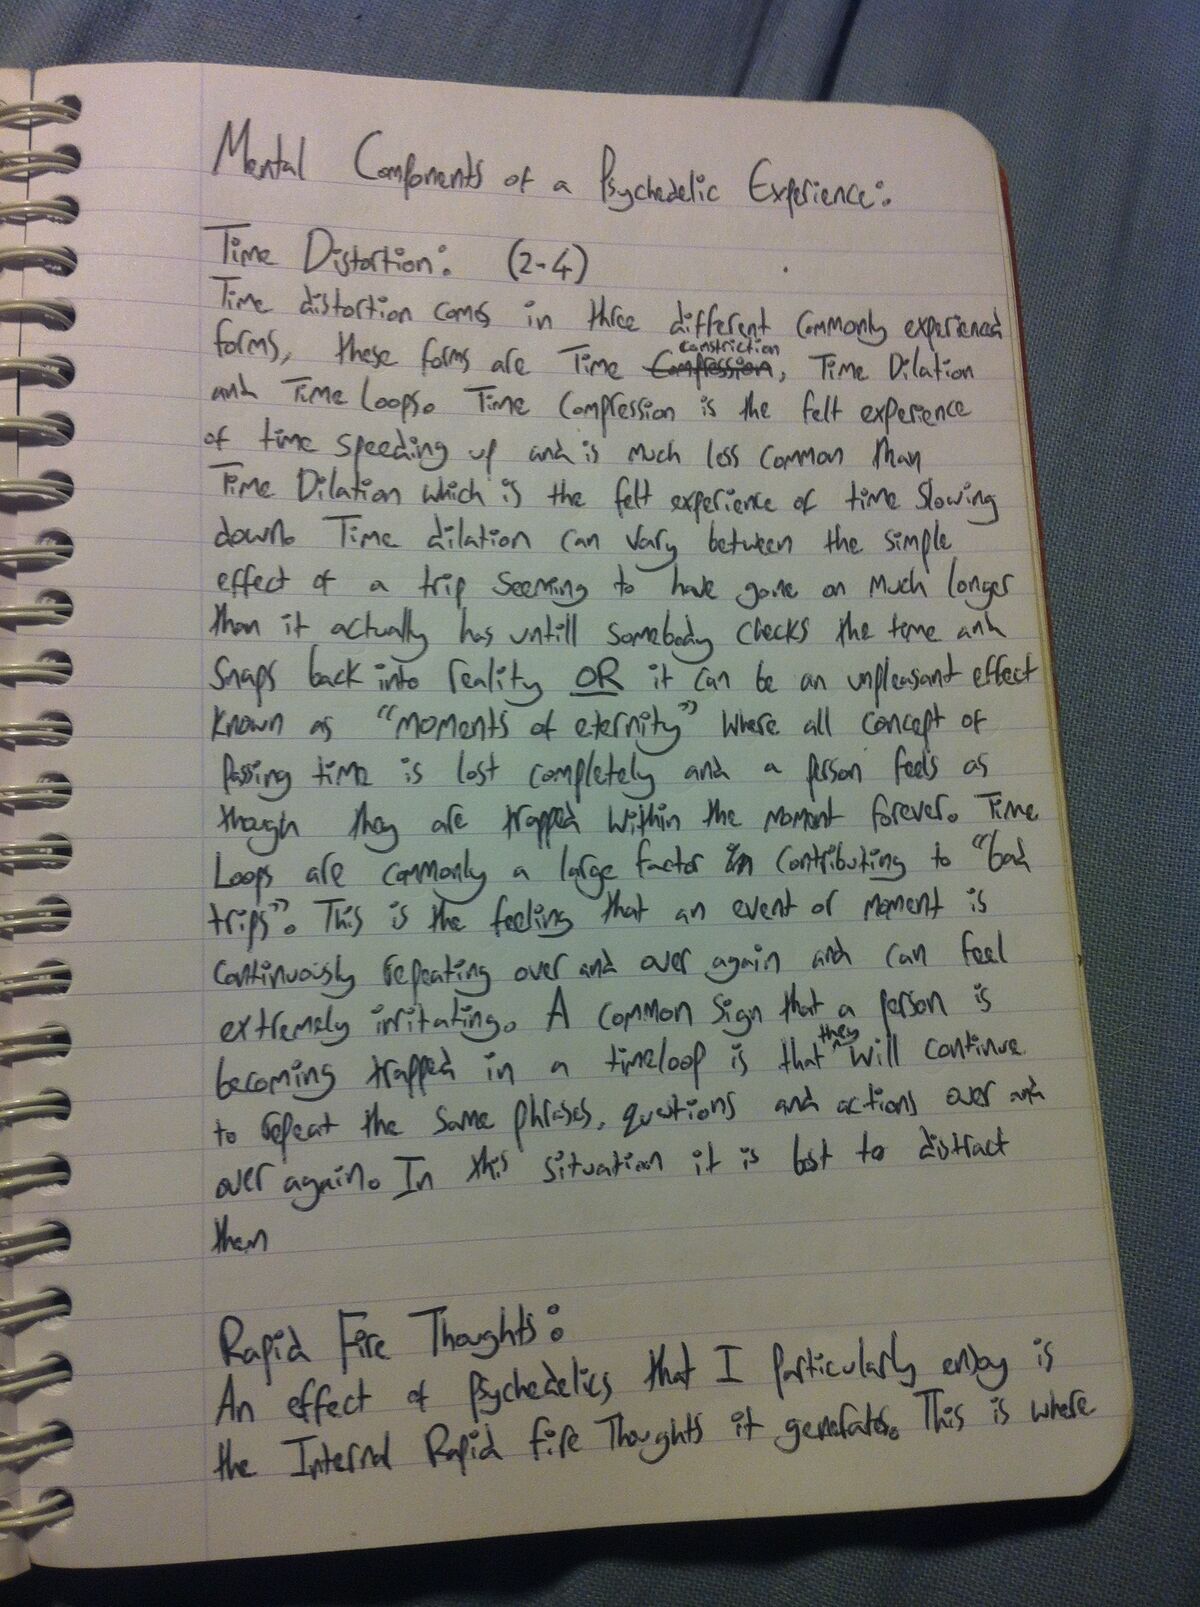 Mental Components of a Psychedelic Experience:
Time Distortion: (2-4)
Time distortion comes in three different commonly experienced
constriction
forms, these forms are Time Compression, Time Dilation
and Time Loops. Time Compression is the felt experience
of time speeding up and is much less common than
Time Dilation which is the felt experience of time slowing
down. Time dilation can vary between the simple
effect of a trip seeming to have gone on much longer
than it actually has untill somebody checks the time and
snaps back into reality OR it can be an unpleasant effect
known as "moments of eternity" where all concept of
passing time is lost completely and a person feels as
though they are trapped within the moment forever. Time
Loops are commonly a large factor in contributing to "bad
trips". This is the feeling that an event or moment is
continuously repeating over and over again and can feel
extremely irritating. A common sign that a person is
they
becoming trapped in a timeloop is that will continue
to repeat the same phrases, questions and actions over and
over again. In this situation it is best to distract
them
Rapid Fire Thoughts:
An effect of psychedelics that I particularly enjoy is
the Internal Rapid Fire Thoughts it generates. This is where